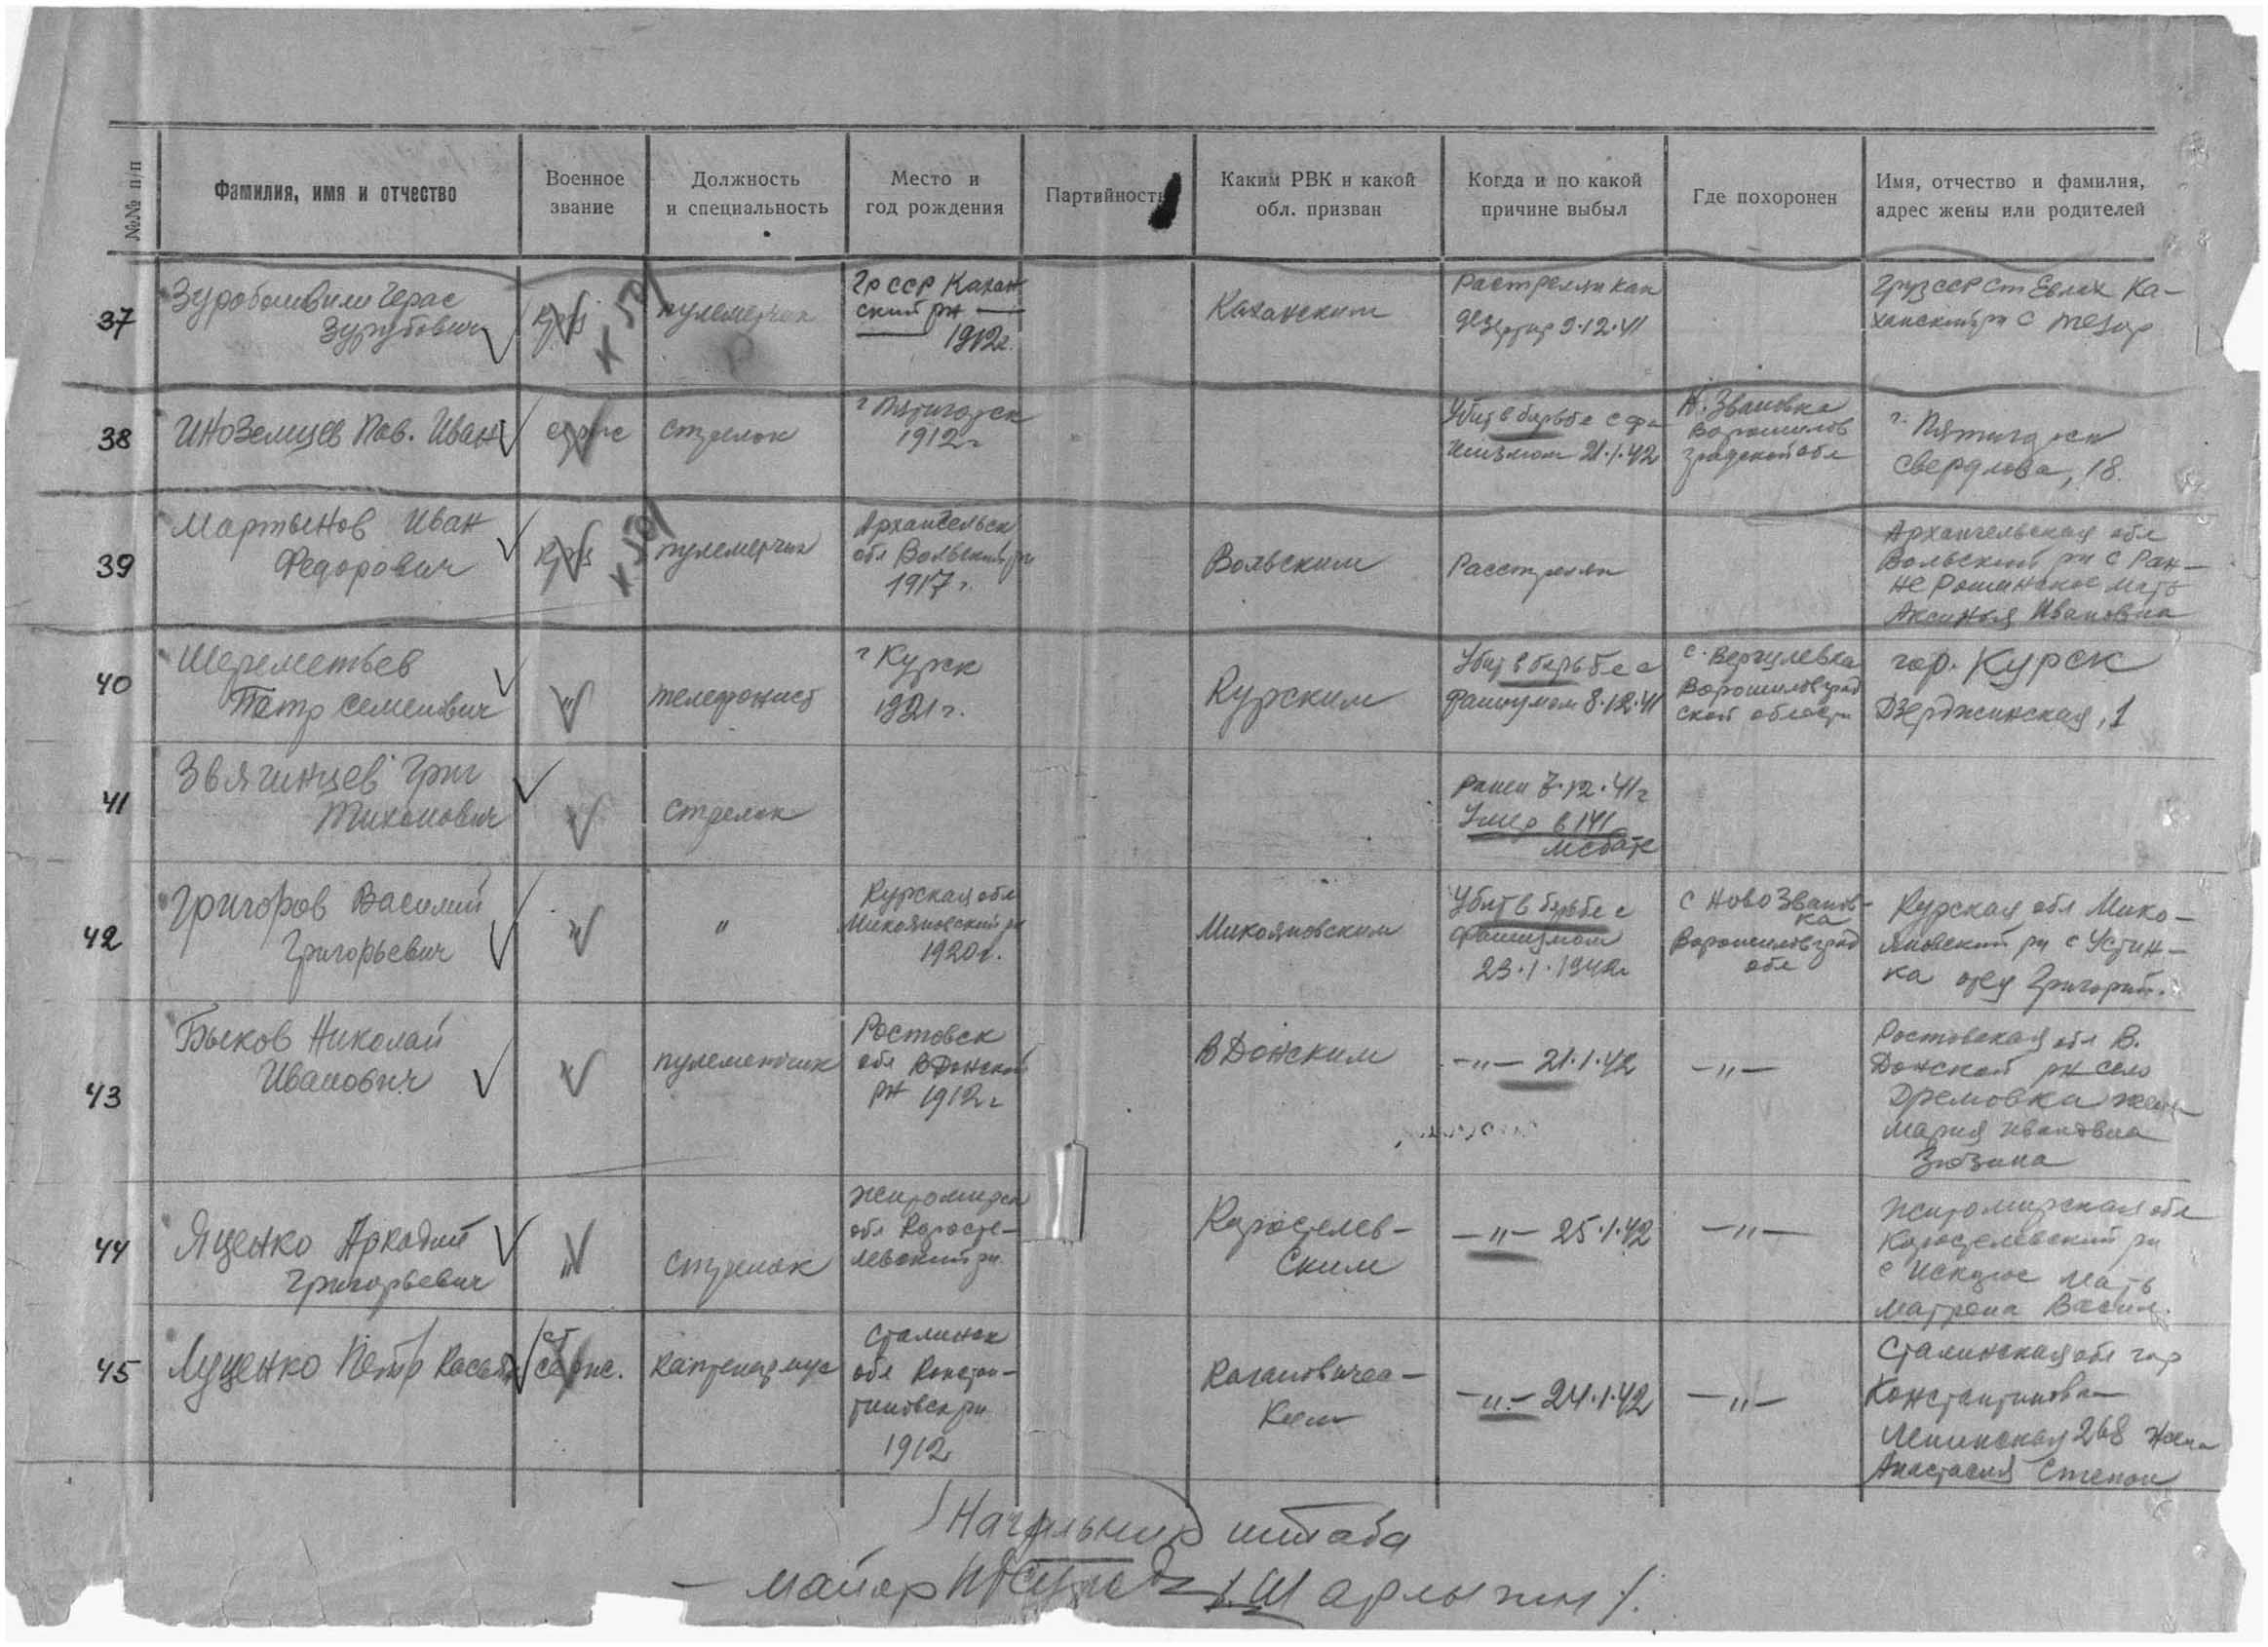 №№ п/п
Фамилия, имя и отчество
Военное
звание
Должность
и специальность
Место и
год рождения
Партийность
Каким РВК и какой
обл. призван
Когда и по какой
причине выбыл
Где похоронен
Имя, отчество и фамилия,
адрес жены или родителей
37
пулеметчик
Гр ССР Кахан
ский рн
1912г.
Каханским
Растрелян как
дезертир 9.12.41
38
Иноземцев Пав. Иван
стрелок
г Пятигорск
1912г
Убит в борьбе с фа
шизмом 21.1.42
Н. Звановка
Ворошилов
градской обл
г. Пятигорск
Свердлова, 18.
39
Мартынов Иван
Федорович
пулеметчик
Архангельск
обл Вольский рн
1917 г.
Вольским
Расстрелян
Архангельская обл
Вольский рн с
мать
Аксинья Ивановна
40
Шереметьев
Петр Семенович
"
телефонист
г Курск
1921г.
Курским
Убит в борьбе с
фашизмом 8.12.41
с. Вергулевка
Ворошиловград
ской области
гор. Курск
Дзержинская, 1
41
Звягинцев Григ
Тихонович
"
стрелок
Ранен 7.12.41г
Умер в 141
медсбате
42
Григоров Василий
Григорьевич
"
"
Курская обл
Микояновский рн
1920г.
Микояновским
Убит в борьбе с
фашизмом
23.1.1942г
с Ново Званов-
ка
Ворошиловград
обл
Курская обл Мико-
яновский рн с Устин-
ка отец Григорий.
43
Быков Николай
Иванович
"
пулеметчик
Ростовск
обл В Донской
рн 1912г
В Донским
—"— 21.1.42
—"—
Ростовская обл В.
Донской рн село
Дремовка жена
Мария Ивановна
Зюзина
44
Яценко Аркадий
Григорьевич
"
стрелок
Житомирск
обл Коросте-
левский рн
Коростелев-
ским
—"— 25.1.42
—"—
Житомирская обл
Коростелевский рн
мать
Матрена Васил.
45
Луценко Петр
ст
серж.
Каптенармус
Сталинск
обл Констан-
тиновск рн
1912
Кагановичес-
ким
—"— 24.1.42
—"—
Сталинская обл гор
Константиновка
Ленинская 268 жена
Анастасия Степан
Начальник штаба
— майор /Шарлыгин/.